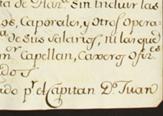 ta de Mar.ª Sin Incluir las
os, Caporales, y otros opera
de sus Salarios, ni la que
or Capellan, Carero y Ofi
dos
ado p.r el Capitan D.n Juan